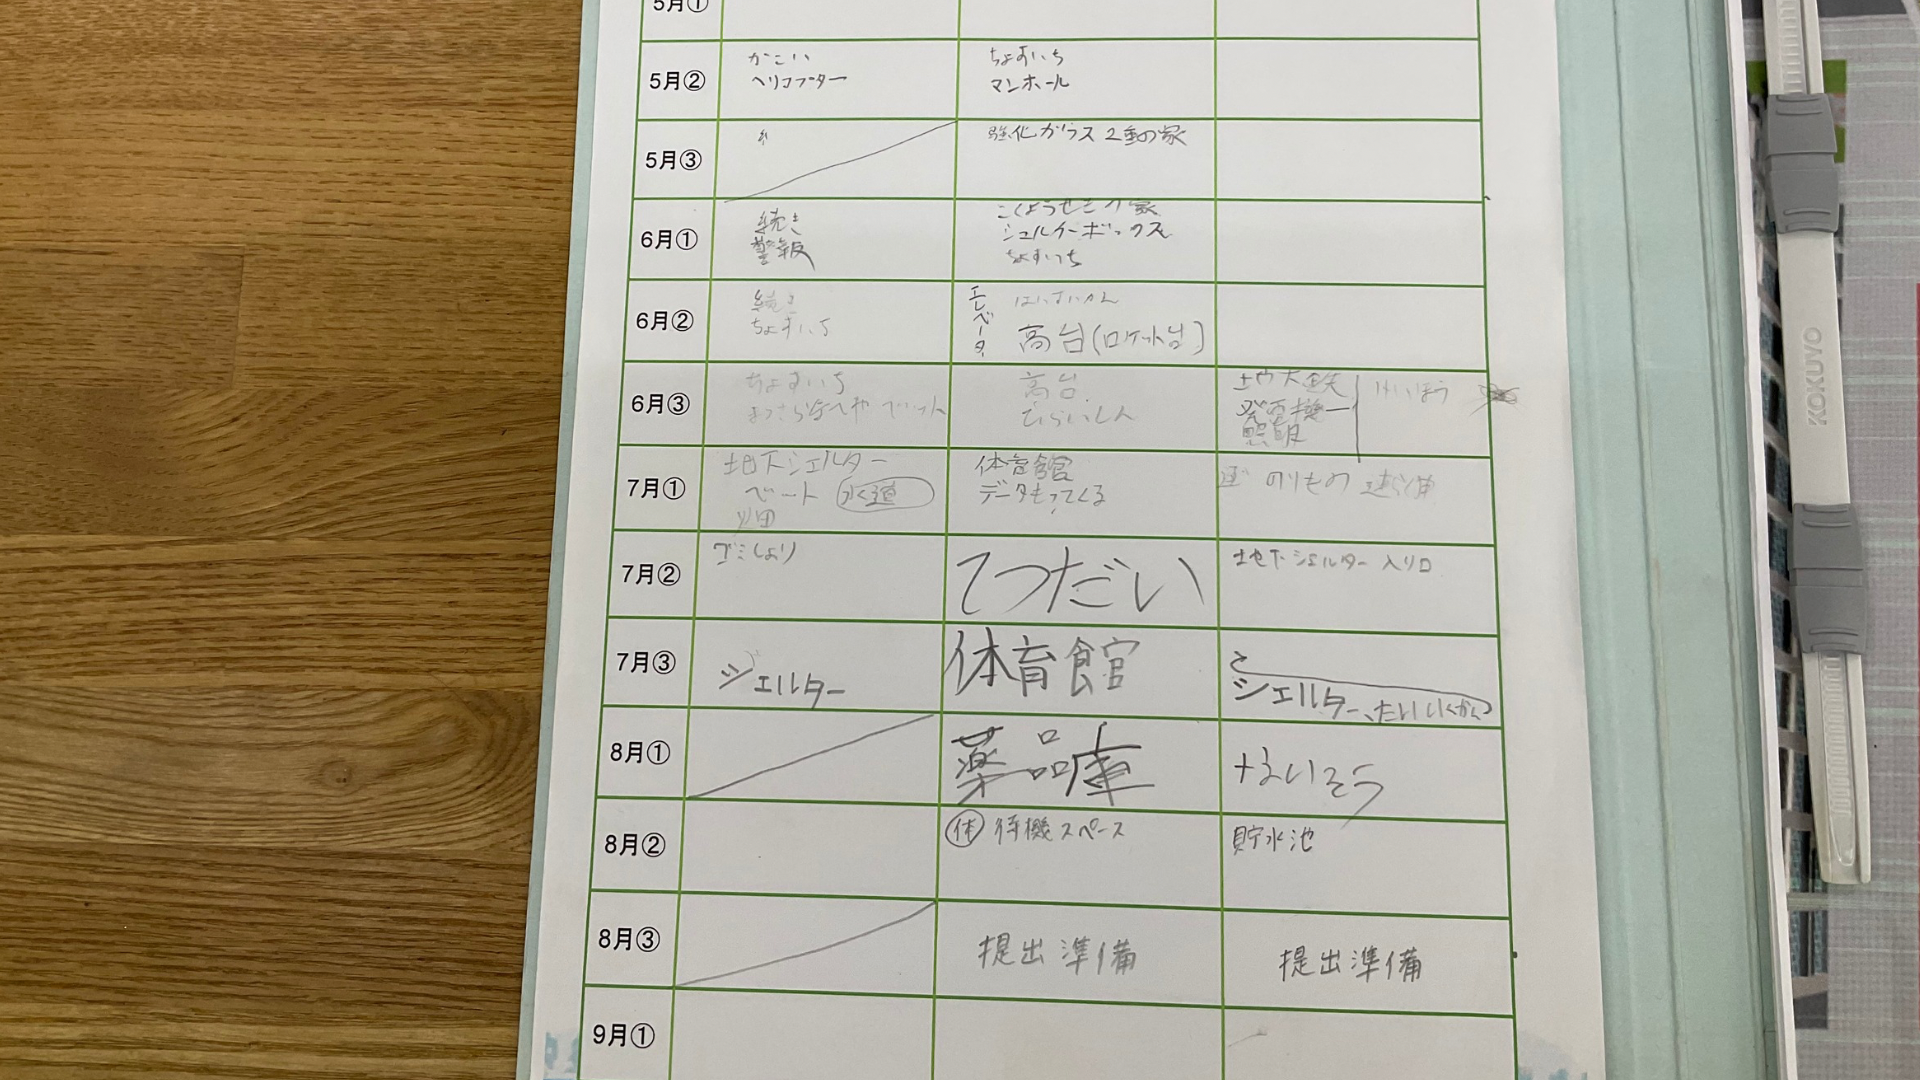 5月①
5月②
がこい
ヘリコプター
ちょすいち
マンホール
5月③
強化ガラス 2重の家
6月①
続き
警報
こくようせきの家
シェルターボックス
ちょすいち
6月②
続き
ちょすいち
エレベータ
はいすいかん
高台(ロケット台)
6月③
ちょすいち
高台
ひらいしん
発電機
照明
けいほう
7月①
地下シェルター
ベート 水道
畑
体育館
データもってくる
のりもの
7月②
ゴミしょり
てつだい
地下シェルター入り口
7月③
シェルター
体育館
シェルター、たいいくかん
8月①
薬品庫
ないそう
8月②
休 待機スペース
貯水池
8月③
提出準備
提出準備
9月①
KOKUYO